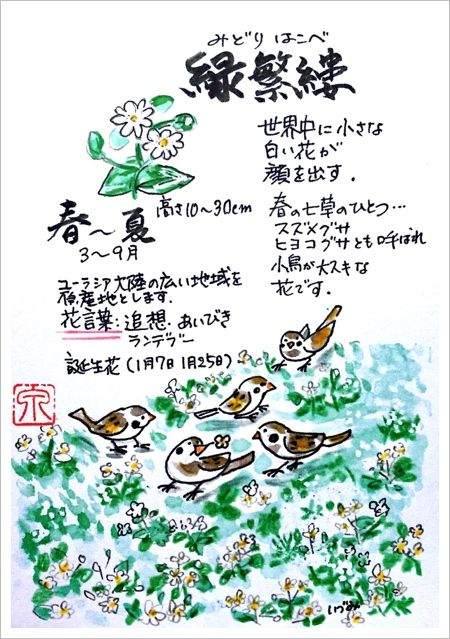 みどり はこべ
緑繁縷
世界中に小さな
白い花が
顔を出す.
春の七草のひとつ…
スズメグサ
ヒヨコグサとも呼ばれ
小鳥が大スキな
花です.
高さ10〜30cm
春〜夏
3〜9月
ユーラシア大陸の広い地域を
原産地とします.
花言葉:追想.あいびき
ランデブー
誕生花(1月7日 1月25日)
京
いづみ